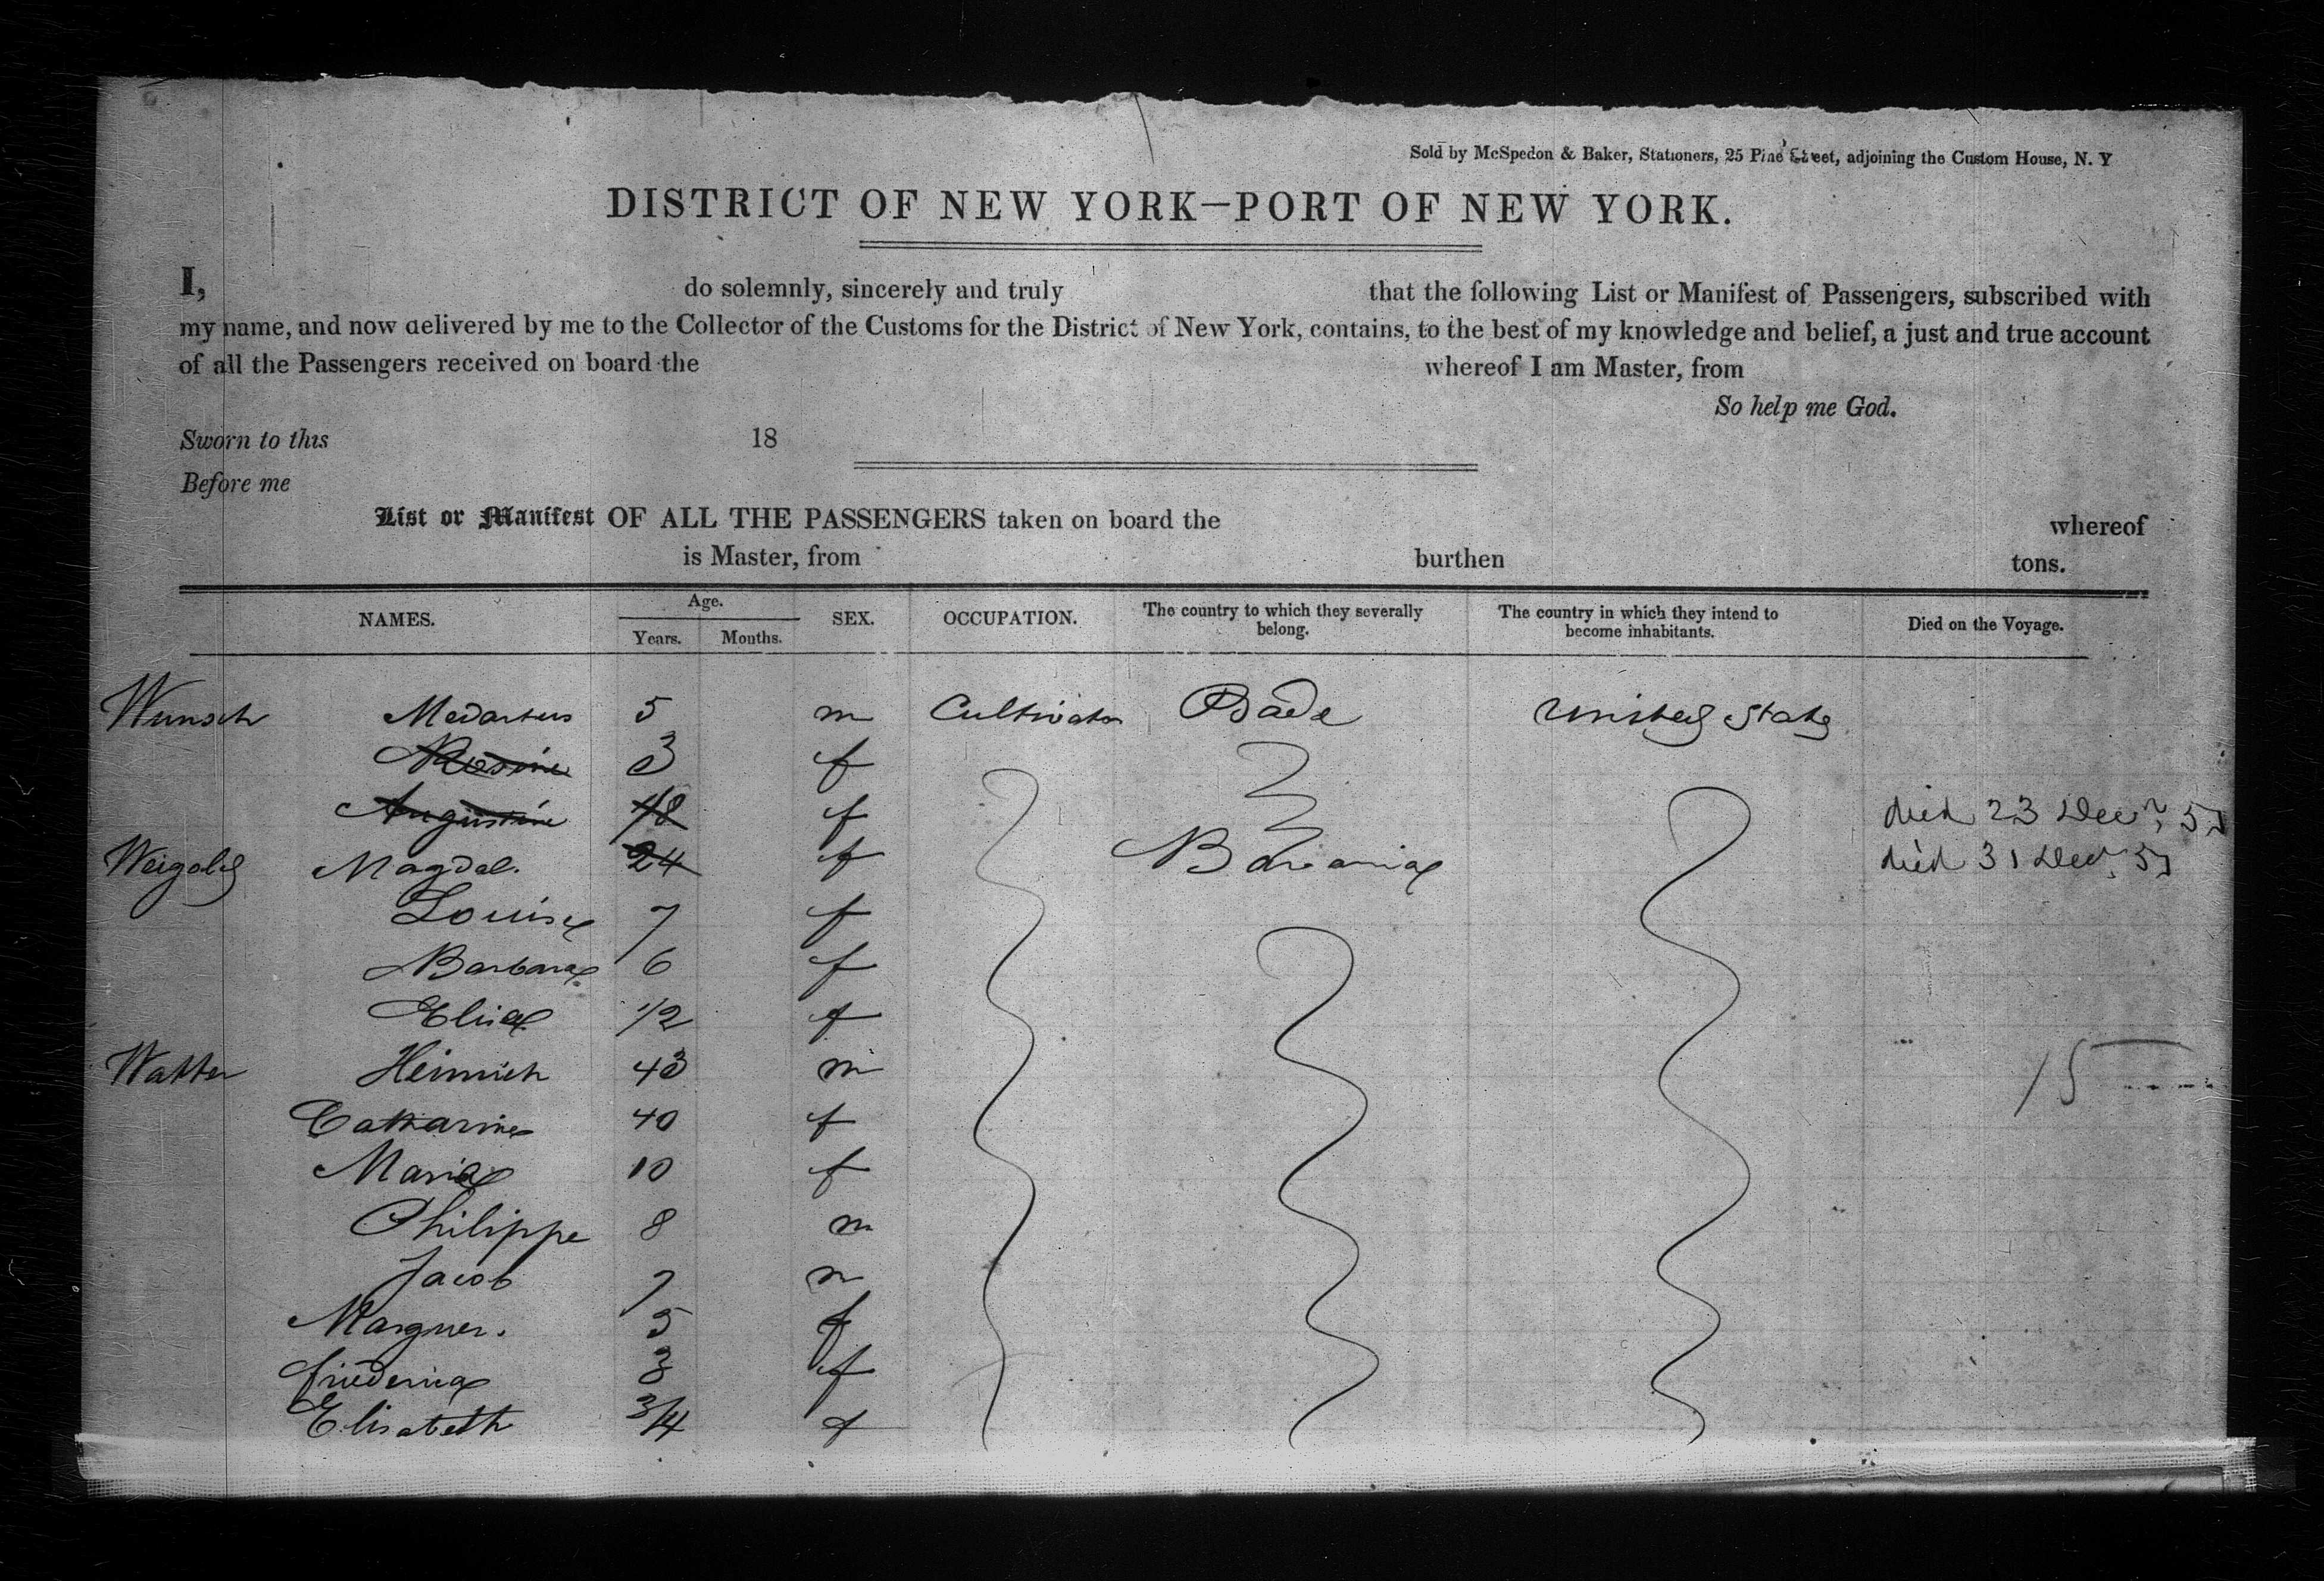 Sold by McSpedon & Baker, Stationers, 25 Pine Street, adjoining the Custom House, N. Y
DISTRICT OF NEW YORK—PORT OF NEW YORK.
I, do solemnly, sincerely and truly that the following List or Manifest of Passengers, subscribed with
my name, and now delivered by me to the Collector of the Customs for the District of New York, contains, to the best of my knowledge and belief, a just and true account
of all the Passengers received on board the whereof I am Master, from
So help me God.
Sworn to this 18
Before me
List or Manifest OF ALL THE PASSENGERS taken on board the whereof
is Master, from burthen tons.
NAMES. Age. Years. Months. SEX. OCCUPATION. The country to which they severally belong. The country in which they intend to become inhabitants. Died on the Voyage.
Wunsch Medardus 5 m Cultivator Bade United States
Rosine 3 f
Augustine 1/8 f died 23 Decr
Weigold Magdal. 24 f Bavaria died 31 Decr
Louise 7 f
Barbara 6 f
Elise 1/2 f
Walter Heinrich 43 m 15
Catharine 40 f
Maria 10 f
Philippe 8 m
Jacob 7 m
Marguer. 5 f
friederica 3 f
Elisabeth 3/4 f